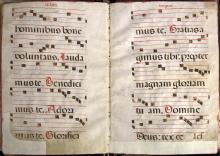 hominibus bone
voluntatis. Lauda
mus te. Benedici
mus te. Adora
mus te. Glorifica
mus te. Gratias a
gimus tibi propter
magnam gloriam
tu am. Domine
Deus: rex ce